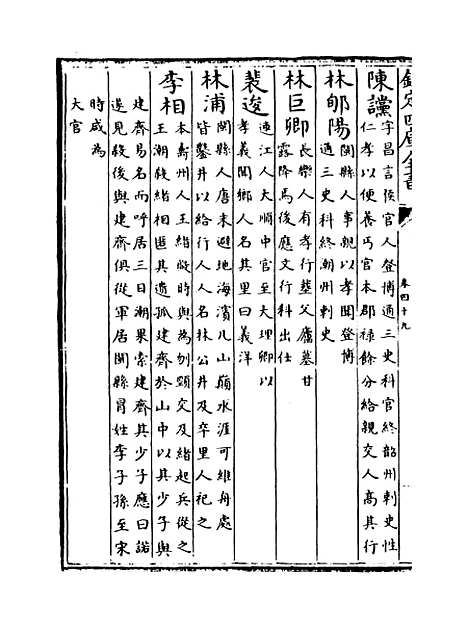 欽定四庫全書
卷四十九
陳讜字昌言侯官人登博通三史科官終韶州刺史性
仁孝以便養丐官本郡祿餘分給親交人高其行
林郇陽閩縣人事親以孝聞登博
通三史科終潮州刺史
林巨卿長樂人有孝行塟父廬墓甘
露降焉後應文行科出仕
裴逡連江人大順中官至大理卿以
孝義聞鄉人名其里曰義洋
林浦閩縣人唐末避地海濱凡山巔水涯可維舟處
皆鑿井以給行人人名林公井及卒里人祀之
李相本壽州人王緒微時與為刎頸交及緒起兵從之
王潮殺緒相匿其遺孤建齊於山中以其少子與
建齊易名而呼居三日潮果索建齊其少子應曰諾
遂見殺後與建齊俱從軍居閩縣冒姓李子孫至宋
時咸為
大官